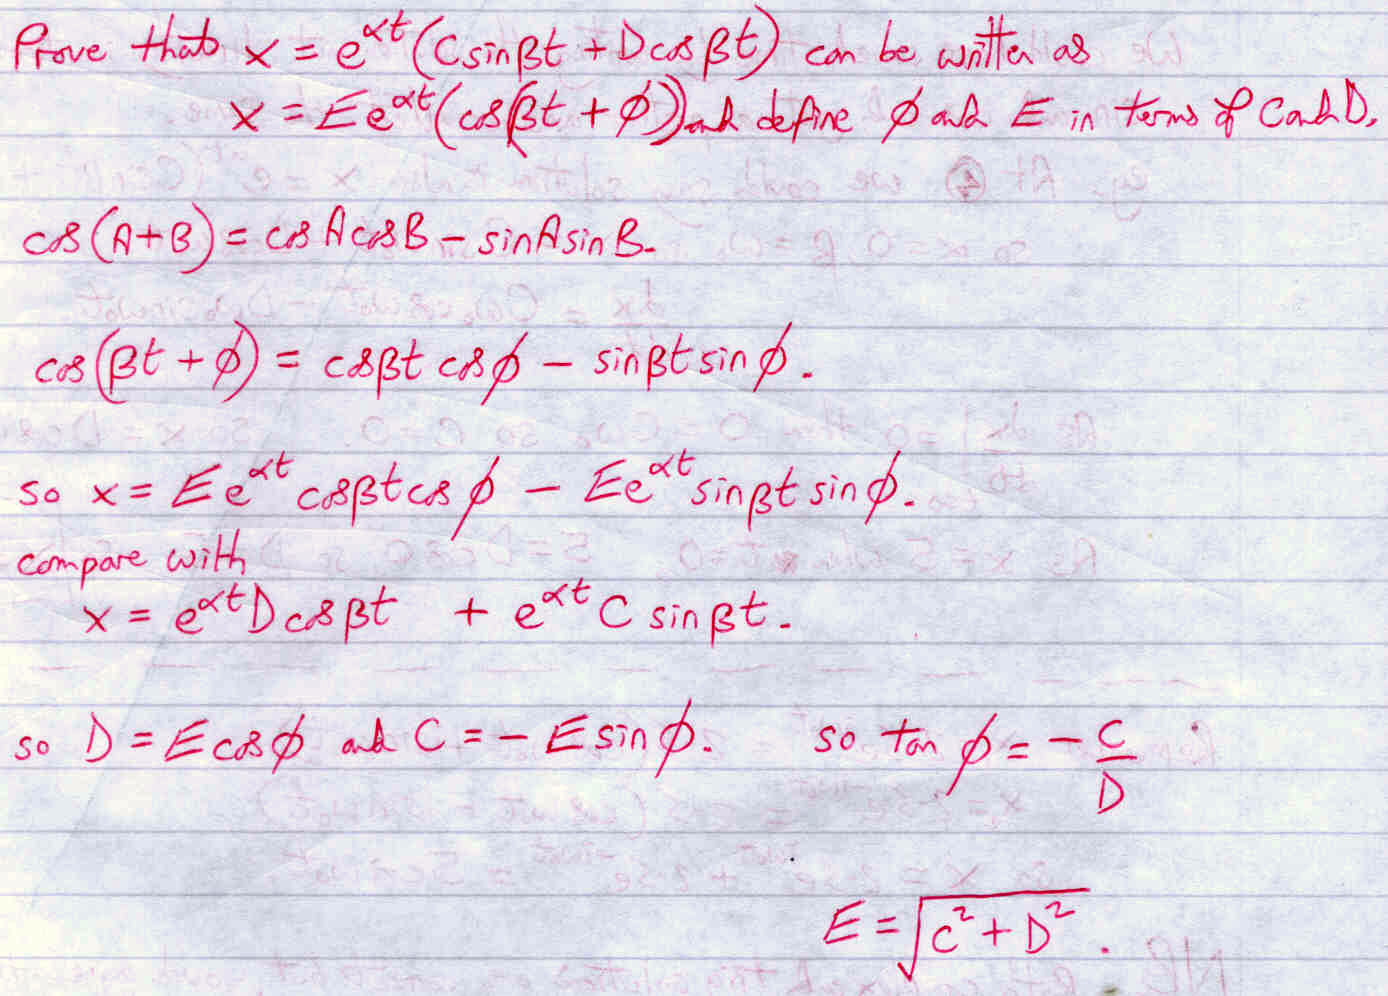 Prove that x = e^αt (C sin βt + D cos βt) can be written as
x = E e^αt (cos(βt + φ)) and define φ and E in terms of C and D.
cos(A+B) = cos A cos B - sin A sin B.
cos(βt + φ) = cos βt cos φ - sin βt sin φ.
so x = E e^αt cos βt cos φ - E e^αt sin βt sin φ.
compare with
x = e^αt D cos βt + e^αt C sin βt.
so D = E cos φ and C = - E sin φ. so tan φ = - C/D
E = √(C² + D²).